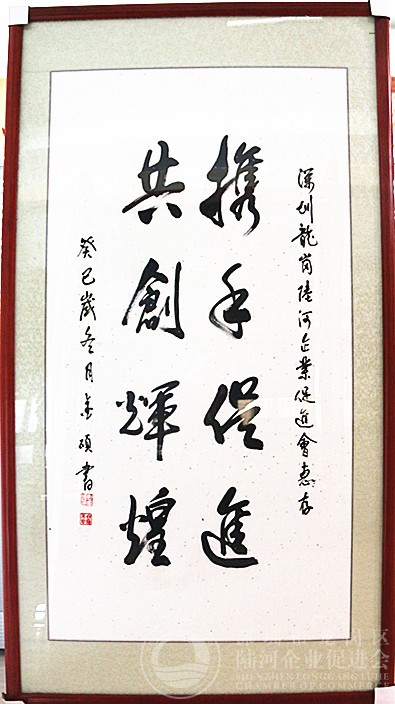 深圳龍崗陸河企業促進會惠存
携手促進
共創輝煌
癸巳歲冬月金碩書
陆河企业促进会
SHENZHEN LONGGANG LUHE
CHAMBER OF COMMERCE